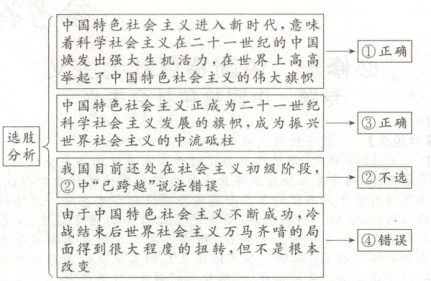 中国特色社会主义进入新时代,意味
着科学社会主义在二十一世纪的中国
焕发出强大生机活力,在世界上高高
举起了中国特色社会主义的伟大旗帜
①正确
中国特色社会主义正成为二十一世纪
科学社会主义发展的旗帜,成为振兴
世界社会主义的中流砥柱
③正确
选肢
分析
我国目前还处在社会主义初级阶段,
②中“已跨越”说法错误
②不选
由于中国特色社会主义不断成功,冷
战结束后世界社会主义万马齐喑的局
面得到很大程度的扭转,但不是根本
改变
④错误